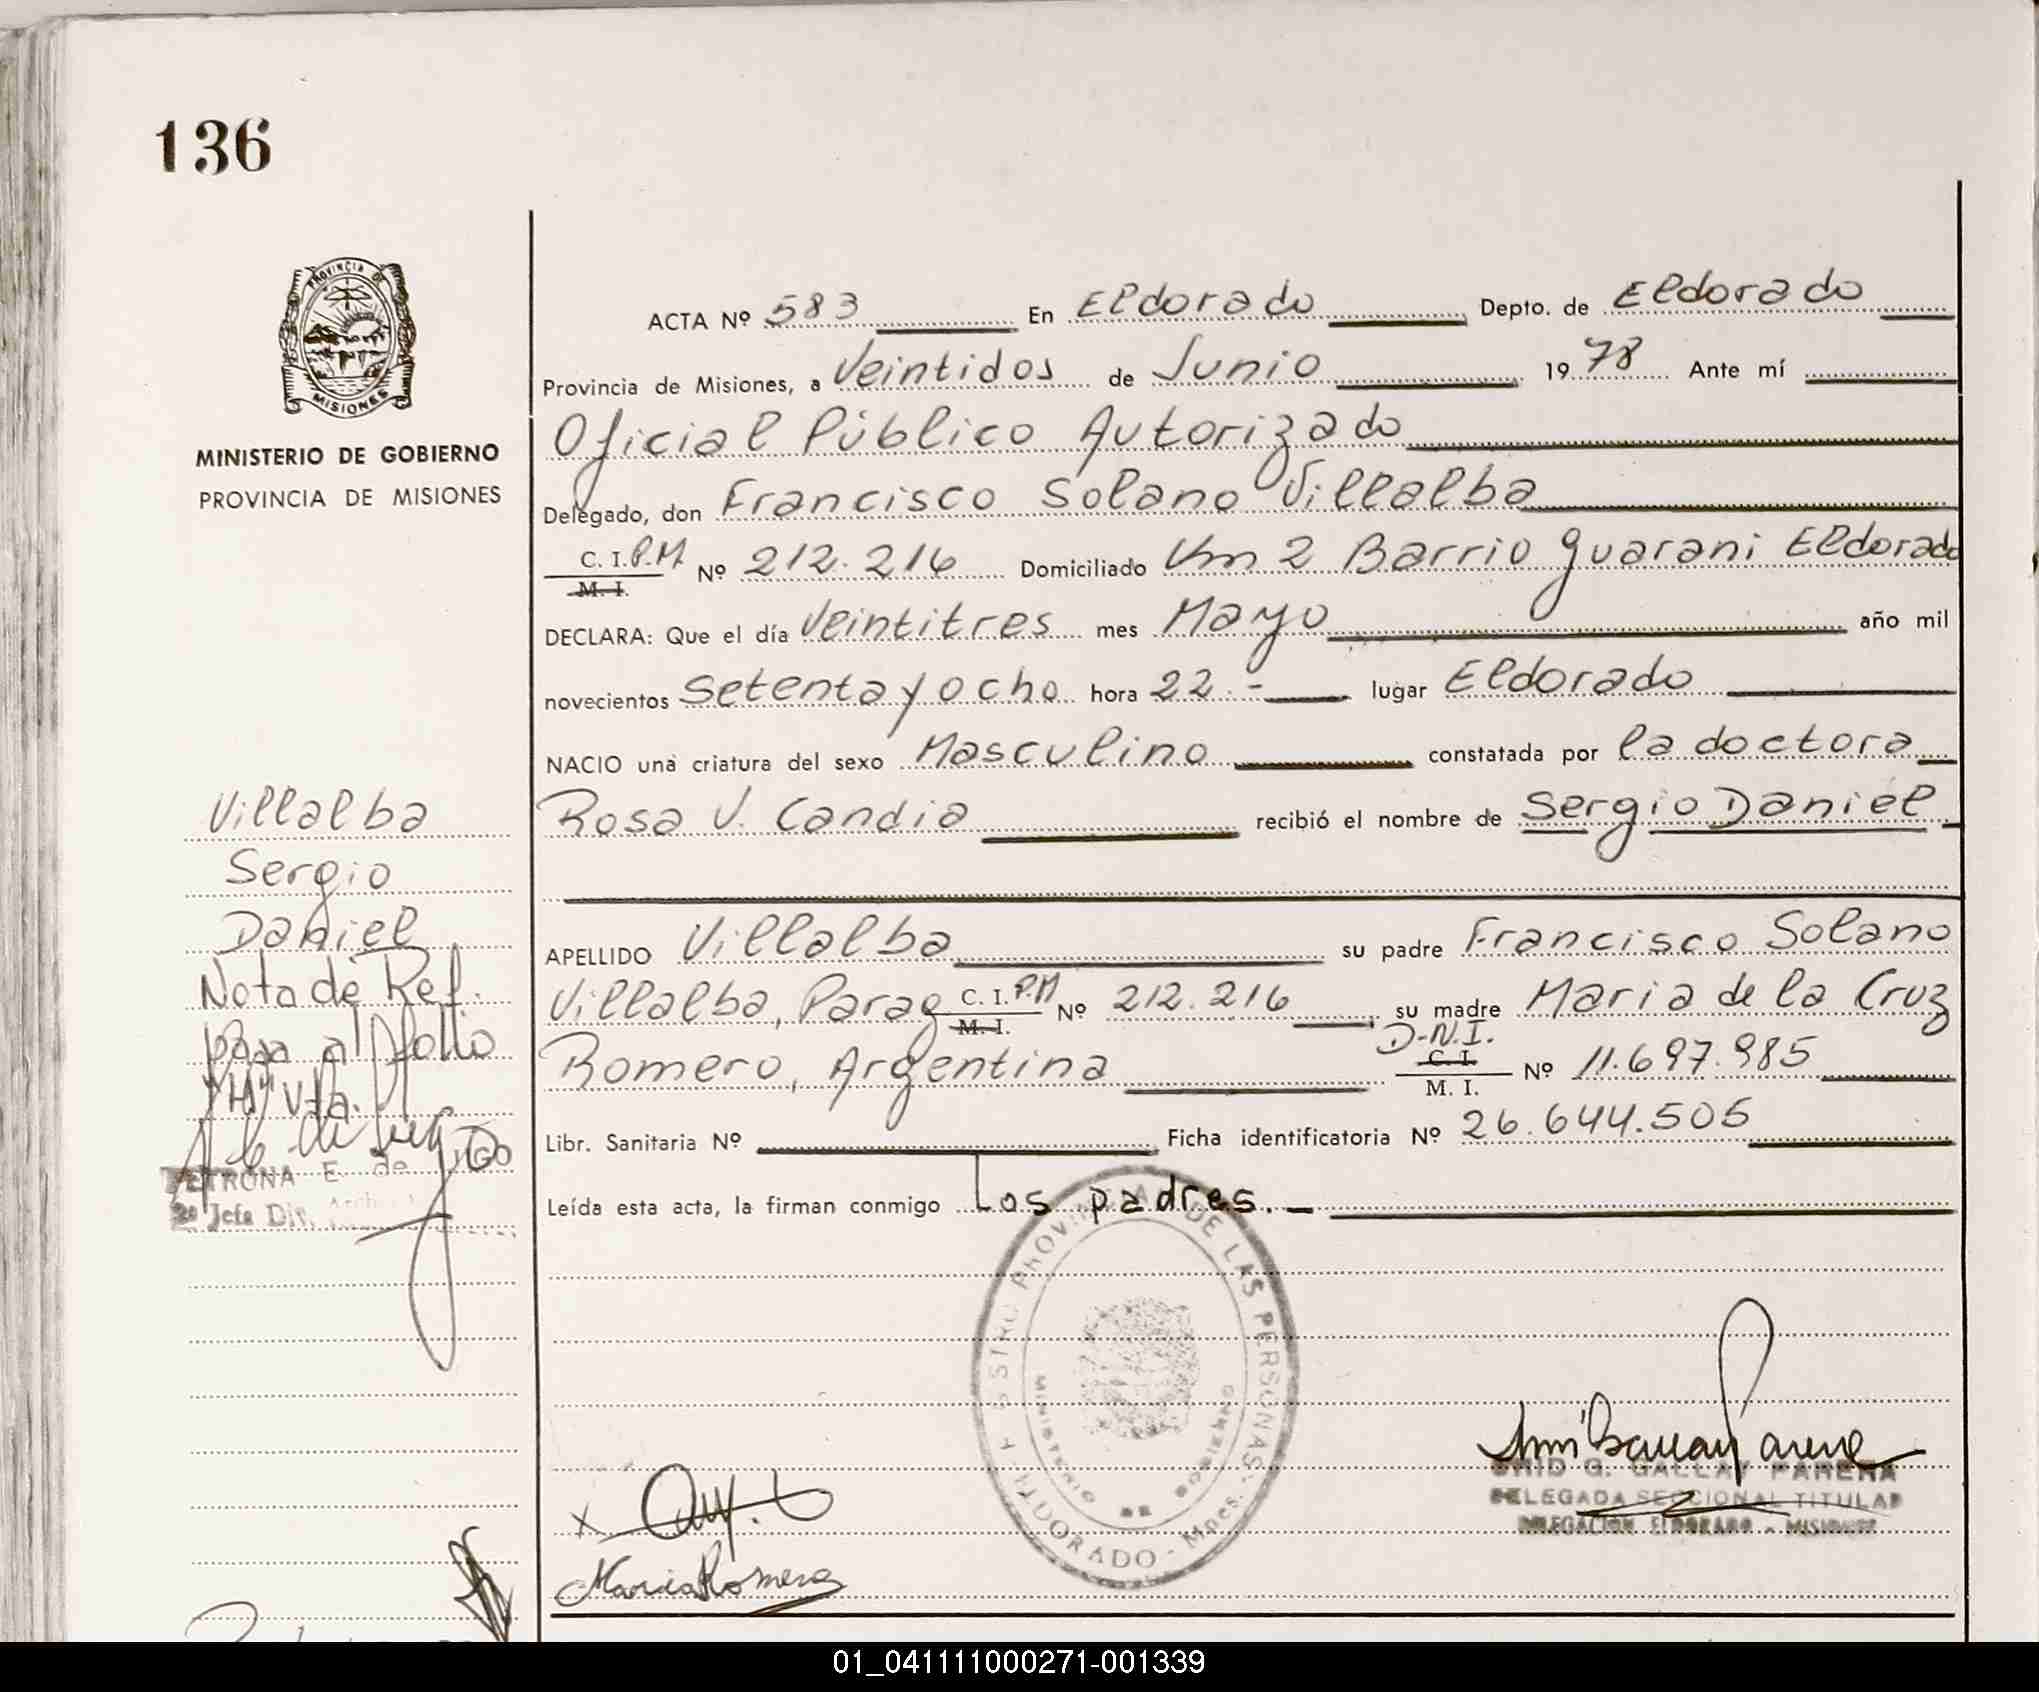 136
PROVINCIA DE
MISIONES
MINISTERIO DE GOBIERNO
PROVINCIA DE MISIONES
ACTA Nº 583 En Eldorado Depto. de Eldorado
Provincia de Misiones, a Veintidos de Junio 1978 Ante mí
Oficial Público Autorizado
Delegado, don Francisco Solano Villalba
C. I. P.M. Nº 212.216 Domiciliado Km 2 Barrio guarani Eldorado
M. I.
DECLARA: Que el día Veintitres mes Mayo año mil
novecientos Setenta y ocho hora 22.- lugar Eldorado
NACIO una criatura del sexo Masculino constatada por la doctora
Rosa V. Candia recibió el nombre de Sergio Daniel
APELLIDO Villalba su padre Francisco Solano
Villalba, Parag C. I. P.M Nº 212.216 su madre Maria de la Cruz
M. I.
D.N.I.
Romero, Argentina C. I. Nº 11.697.985
M. I.
Libr. Sanitaria Nº Ficha identificatoria Nº 26.644.505
Leída esta acta, la firman conmigo Los padres.
Villalba
Sergio
Daniel
Nota de Ref.
pasa al folio
"H" Vta.
PETRONA E. de
2º Jefa Div.
REGISTRO PROVINCIAL DE LAS PERSONAS
MINISTERIO DE GOBIERNO
ELDORADO - Mnes.
G. GALLAY PARERA
DELEGADA SECCIONAL TITULAR
DELEGACION ELDORADO - MISIONES
Maria Romero
01_041111000271-001339